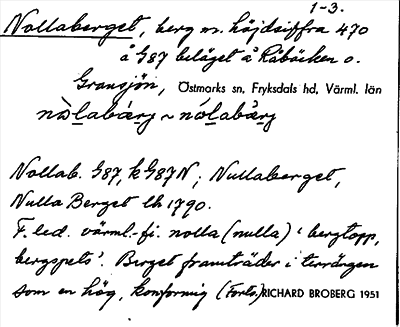 1-3.
Nollaberget, berg m. höjdsiffra 470
å G87 beläget å Råbäcken o.
Gransjön, Östmarks sn, Fryksdals hd, Värml. län
nòlabárg ~ nólabàrg
Nollab. G87, k G87N; Nullaberget,
Nulla Berget lh 1790.
F. led. värml.-fi. nolla (nulla) 'bergtopp,
bergspets'. Berget framträder i terrängen
som en hög, konformig (Forts.) RICHARD BROBERG 1951